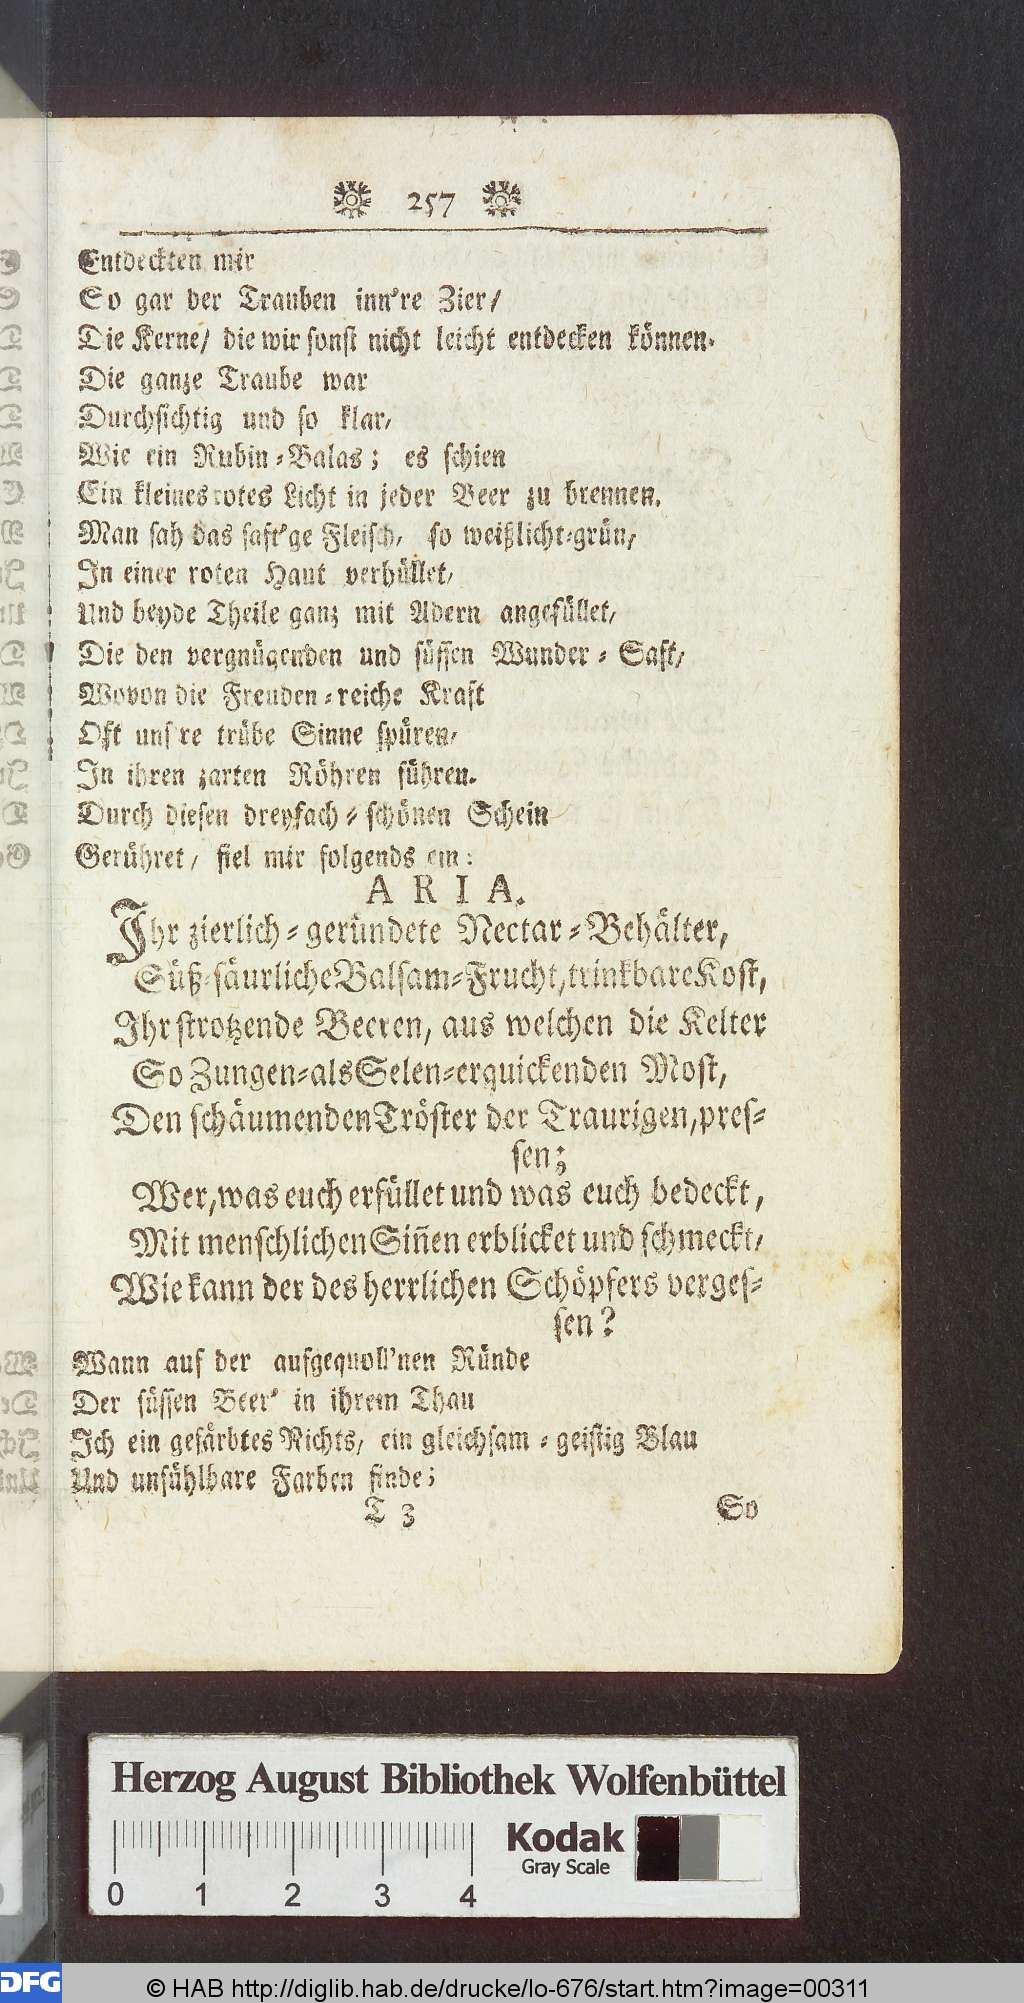 257
Entdeckten mir
So gar der Trauben inn're Zier/
Die Kerne/ die wir sonst nicht leicht entdecken können.
Die ganze Traube war
Durchsichtig und so klar/
Wie ein Rubin-Balas; es schien
Ein kleines rotes Licht in jeder Beer zu brennen.
Man sah das saft'ge Fleisch/ so weißlicht-grün/
In einer roten Haut verhüllet/
Und beyde Theile ganz mit Adern angefüllet/
Die den vergnügenden und süssen Wunder-Saft/
Wovon die Freuden-reiche Kraft
Oft uns're trübe Sinne spüren/
In ihren zarten Röhren führen.
Durch diesen dreyfach-schönen Schein
Gerühret/ fiel mir folgends ein:
ARIA.
Ihr zierlich-geründete Nectar-Behälter,
Süß-säurliche Balsam-Frucht, trinkbare Kost,
Ihr strotzende Beeren, aus welchen die Kelter
So Zungen-als Selen-erquickenden Most,
Den schäumenden Tröster der Traurigen, pres-
sen;
Wer, was euch erfüllet und was euch bedeckt,
Mit menschlichen Siñen erblicket und schmeckt/
Wie kann der des herrlichen Schöpfers verges-
sen?
Wann auf der aufgequoll'nen Ründe
Der süssen Beer' in ihrem Thau
Ich ein gefärbtes Nichts/ ein gleichsam-geistig Blau
Und unfühlbare Farben finde;
T 3 So
Herzog August Bibliothek Wolfenbüttel
Kodak
Gray Scale
0 1 2 3 4
DFG
© HAB http://diglib.hab.de/drucke/lo-676/start.htm?image=00311